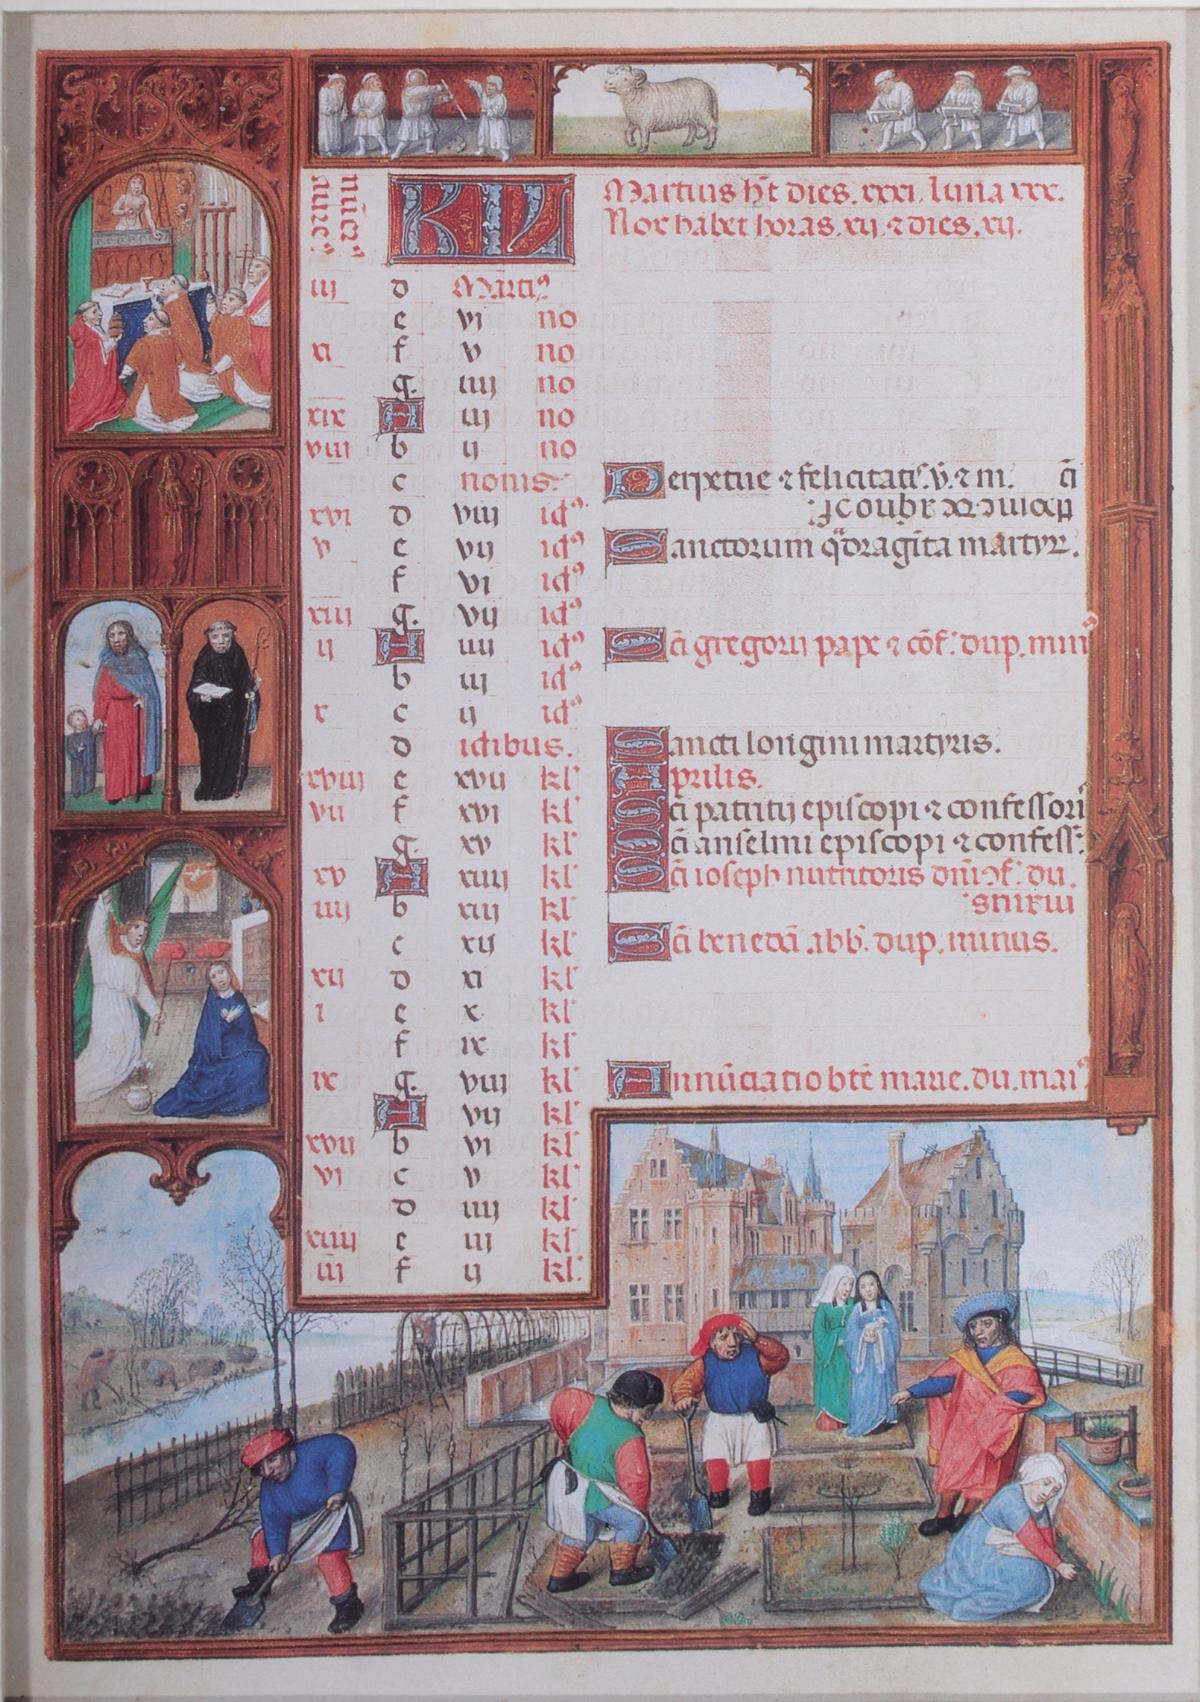 nūer9 aure9 KL Martius ht dies. xxxi. luna xxx.
Nox habet horas. xij. ⁊ dies. xij.
iij d Martij9
e vi no
xi f v no
g. iiij no
xix A iij no
viij b ij no
c nonis. Perpetue ⁊ felicitatis. v. ⁊ m.
xvi d viij id9
v e vij id9 Sanctorum qͣdragīta martyr.
f vi id9
xiij g. vij id9
ij A iiij id9 Sci gregorij pape ⁊ cōf. dup. min9
b iij id9
x c ij id9
d idibus. Sancti longini martyris.
xviij e xvij kl Aprilis.
vij f xvi kl Sci patritij episcopi ⁊ confessoris
g. xv kl Sci anselmi episcopi ⁊ confess.
xv A xiiij kl Sci ioseph nutritoris dn̄i cf. du.
iiij b xiij kl
c xij kl Sci benedci abb. dup. minus.
xij d xi kl
i e x kl
f ix kl
ix g. viij kl Annūciatio bte marie. du. mai9
A vij kl
xvij b vi kl
vi c v kl
d iiij kl
xiiij e iij kl
iij f ij kl.